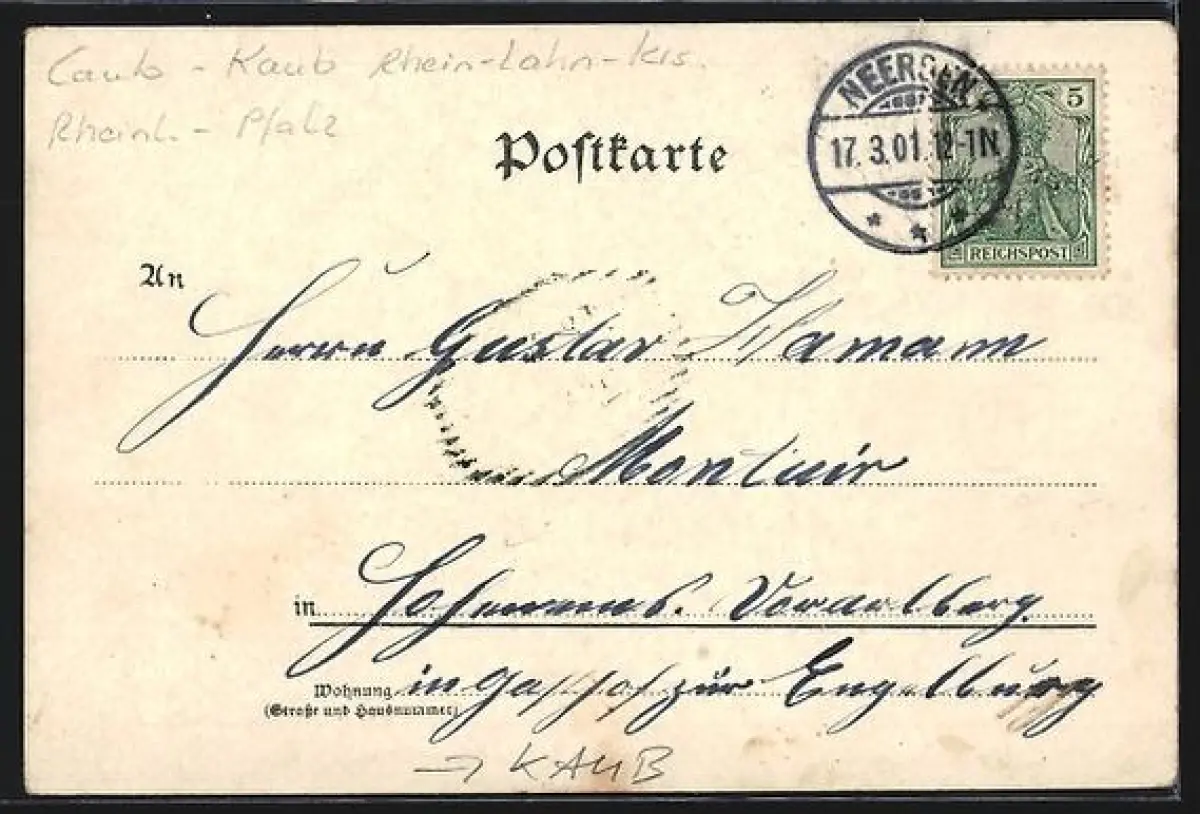 Caub - Kaub Rhein-Lahn-Krs.
Rheinl. - Pfalz
Postkarte
NEERSEN
17.3.01.12-1N.
5
REICHSPOST
An
Herrn Gustav Hamann
Monteur
in Hohenems. Vorarlberg.
Wohnung in Gasthof zur Engelburg
(Straße und Hausnummer)
→ KAUB